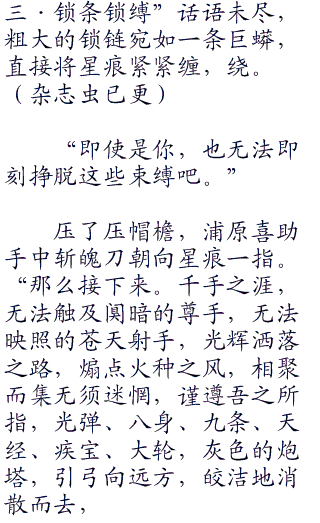 三·锁条锁缚”话语未尽，
粗大的锁链宛如一条巨蟒，
直接将星痕紧紧缠，绕。
（杂志虫已更）
“即使是你，也无法即
刻挣脱这些束缚吧。”
压了压帽檐，浦原喜助
手中斩魄刀朝向星痕一指。
“那么接下来。千手之涯，
无法触及阒暗的尊手，无法
映照的苍天射手，光辉洒落
之路，煽点火种之风，相聚
而集无须迷惘，谨遵吾之所
指，光弹、八身、九条、天
经、疾宝、大轮，灰色的炮
塔，引弓向远方，皎洁地消
散而去，